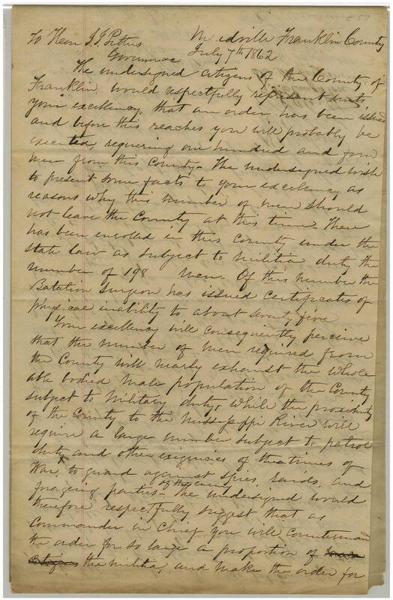 Meadville Franklin County
To Hon J. J. Pettus July 7th 1862
Governor
The undersigned citizens of the County of
Franklin would respectfully represent unto
your excellency that an order has been issued
and before this reaches you will probably be
executed, requiring one hundred and
men from this County. The undersigned wish
to present some facts to your excellency as
reasons why this number of men should
not leave the County at this time. There
has been enrolled in this County under the
State law as subject to militia duty the
number of 198 men. Of this number the
Batalion Surgeon has issued certificates of
physical inability to about Seventy five
Your excellency will consequently perceive
that the number of men required from
the County will nearly exhaust the whole
able bodied male population of the County
subject to Military duty, while the proximity
of the County to the Mississippi River will
require a large number subject to patrol
duty and other exigencies of the times of
War to guard against spies, and
foraging parties of the enemy The undersigned would
therefore respectfully suggest that as
Commander in Chief you will countermand
the order for so large a proportion of
citizens the militia, and make the order for